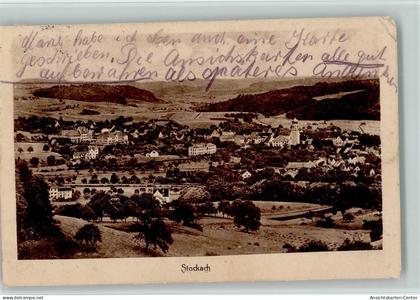 Marie habe ich eben auch eine Karte
geschrieben. Die Ansichtskarten alle gut
aufbewahren als späteres Andenken
Stockach
www.ansichtskarten-center.de